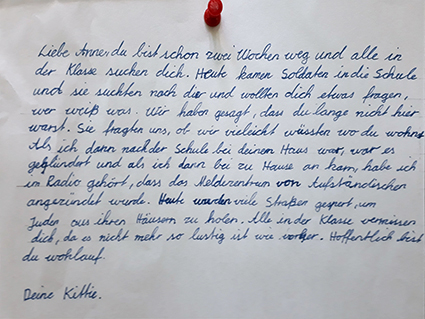 Liebe Anne, du bist schon zwei Wochen weg und alle in
der Klasse suchen dich. Heute kamen Soldaten in die Schule
und sie suchten nach dir und wollten dich etwas fragen,
wer weiß was. Wir haben gesagt, dass du lange nicht hier
warst. Sie fragten uns, ob wir vieleicht wüssten wo du wohnst
Als ich dann nach der Schule bei deinem Haus war, war es
geplündert und als ich dann bei zu Hause an kam, habe ich
im Radio gehört, dass das Meldezentrum von Aufständischen
angezündet wurde. Heute wurden viele Straßen gesperrt, um
Juden aus ihren Häusern zu holen. Alle in der Klasse vermissen
dich, da es nicht mehr so lustig ist wie vorher. Hoffentlich bist
du wohlauf.
Deine Kittie.